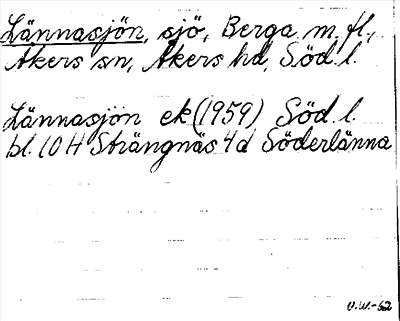 Lännasjön, sjö, Berga m. fl.,
Åkers sn, Åkers hd, Söd. l.
Lännasjön ek (1959) Söd. l.
bl. 10 H Strängnäs 4d Söderlänna
O.W.-62